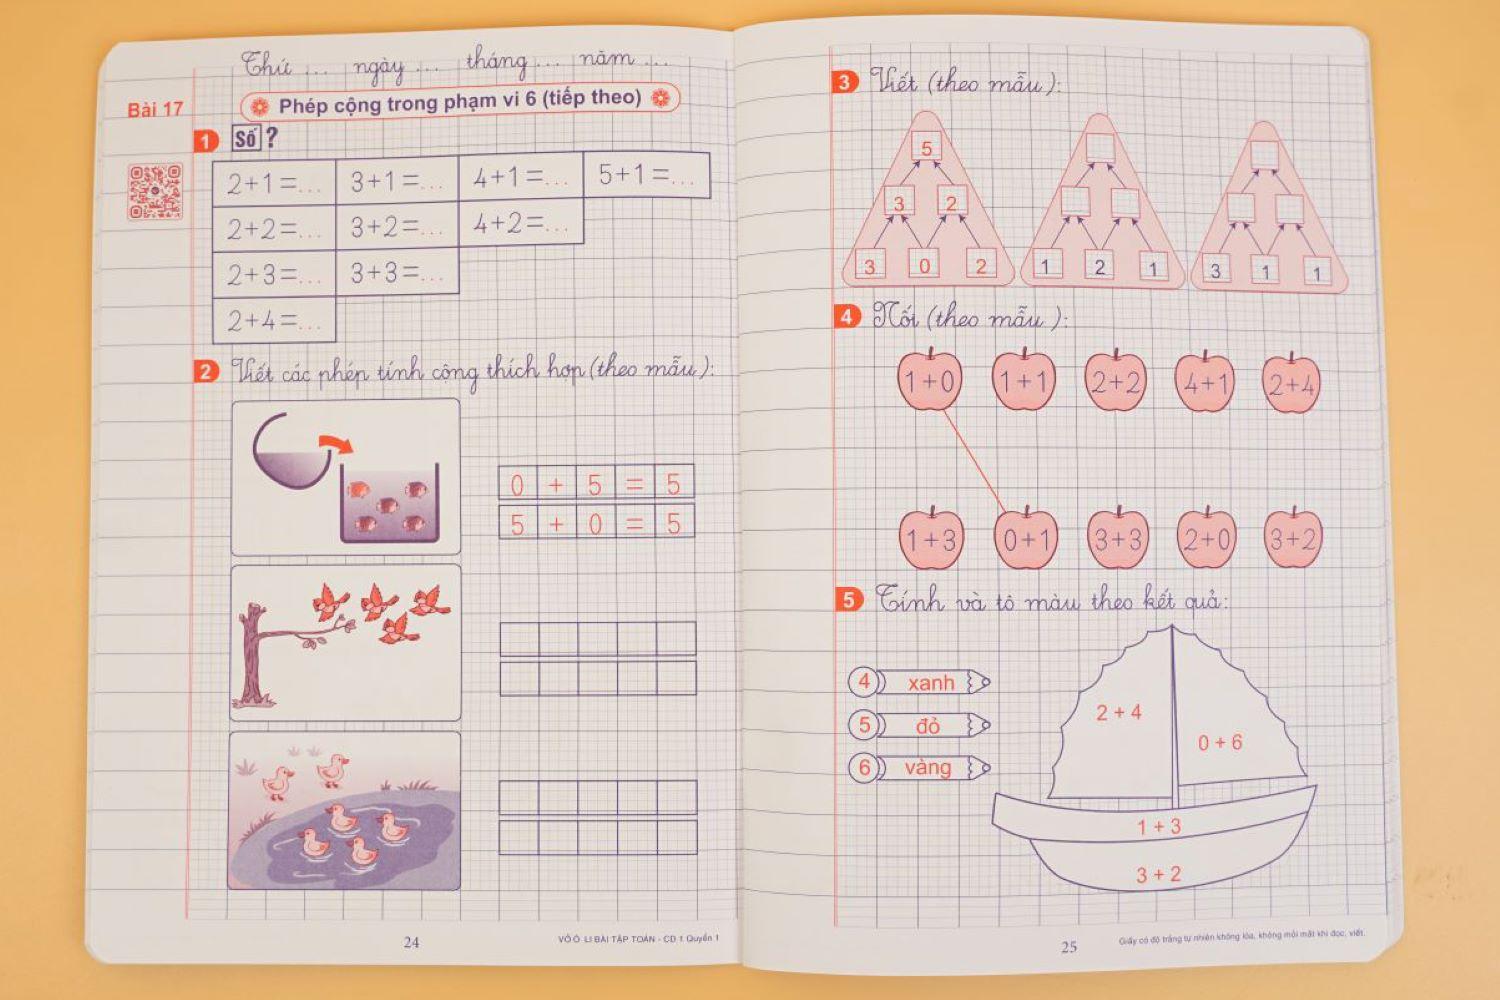 Thứ ... ngày ... tháng ... năm ...
Bài 17
Phép cộng trong phạm vi 6 (tiếp theo)
1 Số ?
2+1=... 3+1=... 4+1=... 5+1=...
2+2=... 3+2=... 4+2=...
2+3=... 3+3=...
2+4=...
2 Viết các phép tính cộng thích hợp (theo mẫu):
0 + 5 = 5
5 + 0 = 5
24
VỞ Ô LI BÀI TẬP TOÁN - CD 1 Quyển 1
3 Viết (theo mẫu):
5
3 2
3 0 2 1 2 1 3 1 1
4 Nối (theo mẫu):
1+0 1+1 2+2 4+1 2+4
1+3 0+1 3+3 2+0 3+2
5 Tính và tô màu theo kết quả:
4 xanh
5 đỏ
6 vàng
2 + 4
0 + 6
1 + 3
3 + 2
25
Giấy có độ trắng tự nhiên không lóa, không mỏi mắt khi đọc, viết.